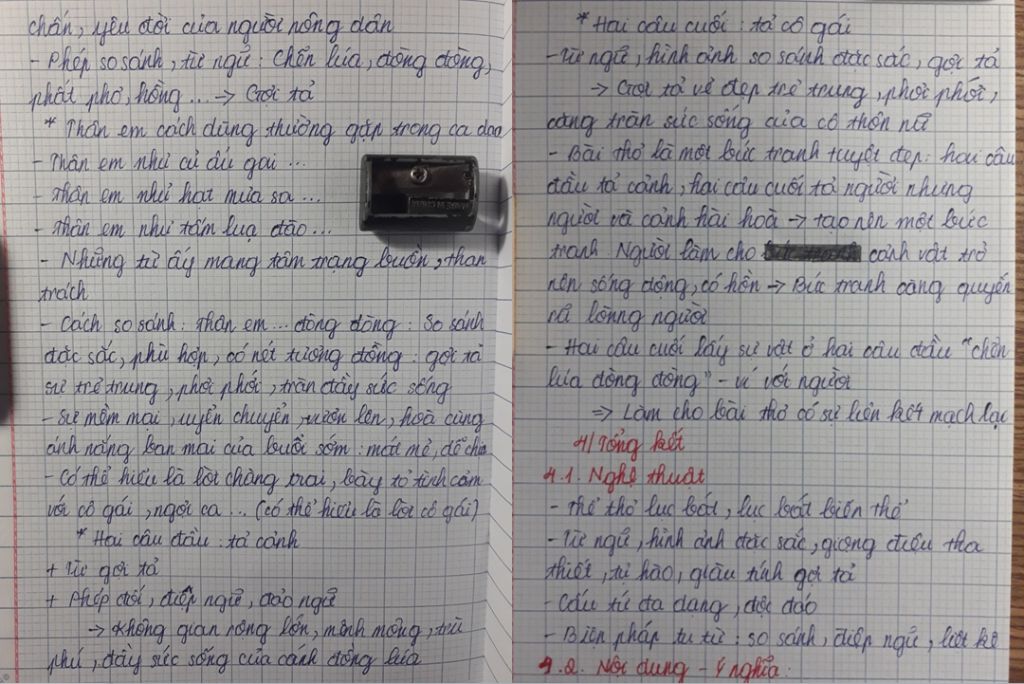 chấn, yêu đời của người nông dân
- Phép so sánh, từ ngữ: Chẽn lúa, đòng đòng,
phất phơ, hồng ... → Gợi tả
* Thân em cách dùng thường gặp trong ca dao
- Thân em như củ ấu gai ...
- Thân em như hạt mưa sa ...
- Thân em như tấm lụa đào ...
- Những từ ấy mang tâm trạng buồn, than
trách
- Cách so sánh: Thân em ... đòng đòng: So sánh
đặc sắc, phù hợp, có nét tương đồng: gợi tả
sự trẻ trung, phơi phới, tràn đầy sức sống
- Sự mềm mại, uyển chuyển, vươn lên, hoà cùng
ánh nắng ban mai của buổi sớm: mát mẻ, dễ chịu
- Có thể hiểu là lời chàng trai, bày tỏ tình cảm
với cô gái, ngợi ca ... (có thể hiểu là lời cô gái)
* Hai câu đầu: tả cảnh
+ Từ gợi tả
+ Phép đối, điệp ngữ, đảo ngữ
→ Không gian rộng lớn, mênh mông, trù
phú, đầy sức sống của cánh đồng lúa
* Hai câu cuối: tả cô gái
- Từ ngữ, hình ảnh so sánh đặc sắc, gợi tả
→ Gợi tả vẻ đẹp trẻ trung, phơi phới,
căng tràn sức sống của cô thôn nữ
- Bài thơ là một bức tranh tuyệt đẹp: hai câu
đầu tả cảnh, hai câu cuối tả người nhưng
người và cảnh hài hoà → tạo nên một bức
tranh. Người làm cho cảnh vật trở
nên sống động, có hồn → Bức tranh càng quyến
rũ lònng người
- Hai câu cuối lấy sự vật ở hai câu đầu "chẽn
lúa đòng đòng" - ví với người
⇒ Làm cho bài thơ có sự liên kết mạch lạc
4/ Tổng kết
4.1. Nghệ thuật
- Thể thơ lục bát, lục bát biến thể
- Từ ngữ, hình ảnh đặc sắc, giọng điệu tha
thiết, tự hào, giàu tính gợi tả
- Cấu tứ đa dạng, độc đáo
- Biện pháp tu từ: so sánh, điệp ngữ, liệt kê
4.2. Nội dung - Ý nghĩa: